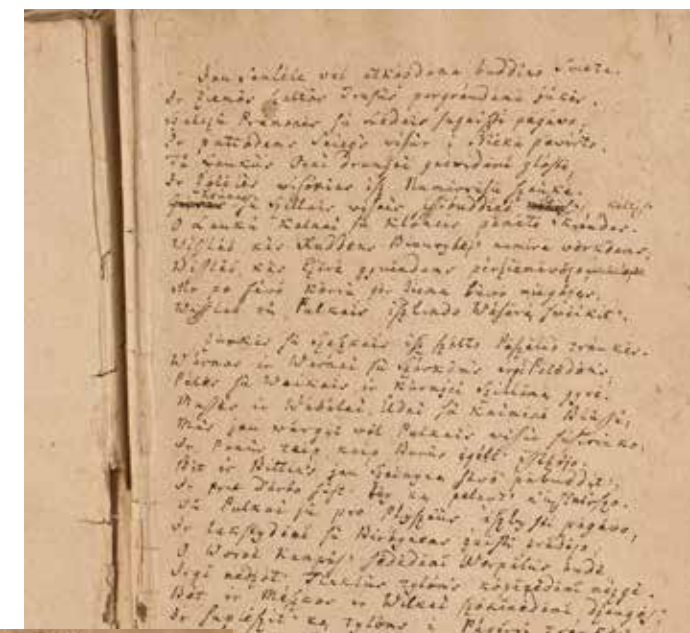 Jau Saulele vėl atkopdama buddino Svietą.
Ir Ziemos szaltos Trusus pargraudama jůkės.
Szalczû Pramonės sů Lledais sugaiszti pagavo,
Ir puttodams Sniegs wissur į Niekà pavirto.
Tů Laukùs Orai drungni gaividami glostė,
Ir Zolelės wissokias isz Numirrusû szauke.
Krûmus sů Szillais wissais iszsibuddino keltis,
O Laukû Kalnai sů Klôneis pametė Skrandas.
Wislàb, kas Ruddens Bjaurybėj' numirė werkdams,
Wislàb, kas Ezerė gyvendams perziemawojo
Ar po sawo Kerrù per Ziemą buwo miegojęs,
Wislàb tů Pulkais iszlindo Wasarą sweikįt'.
Ziurkės sů Szeszkais isz szalto Pászalio traukės.
Warnos ir Warnai sů Szarkoms irgi Pelėdoms,
Pelės sů Waikais ir Kurmjei Szillumą gyrė.
Mussės ir Wabalai, Ůdai sů Kaimene Blussû,
Mus jau wargįt wėl Pulkais wissur susirinko,
Ir Ponus taip kaip Burus įgilt' iszsizojo.
Bet ir Bittins jau Szeimyną sawo pabuddįt',
Ir prie Darbo sust' bey ką pelnyt' n'uzmirszo.
Tů Pulkai jů pro Plyszius iszlįsti pagawo,
Ir lakstydami sů Birbynėms zaisti pradėjo,
O Worai Kampůs' sėdėdami Werpalus audė
Irgi medzot' Tinklùs tylomis kopinėdami mezgė.
Bet ir Meszkos ir Wilkai szokinėdami dzaugės,
Ir suplėszįt' ką tylomis į Pagirrį